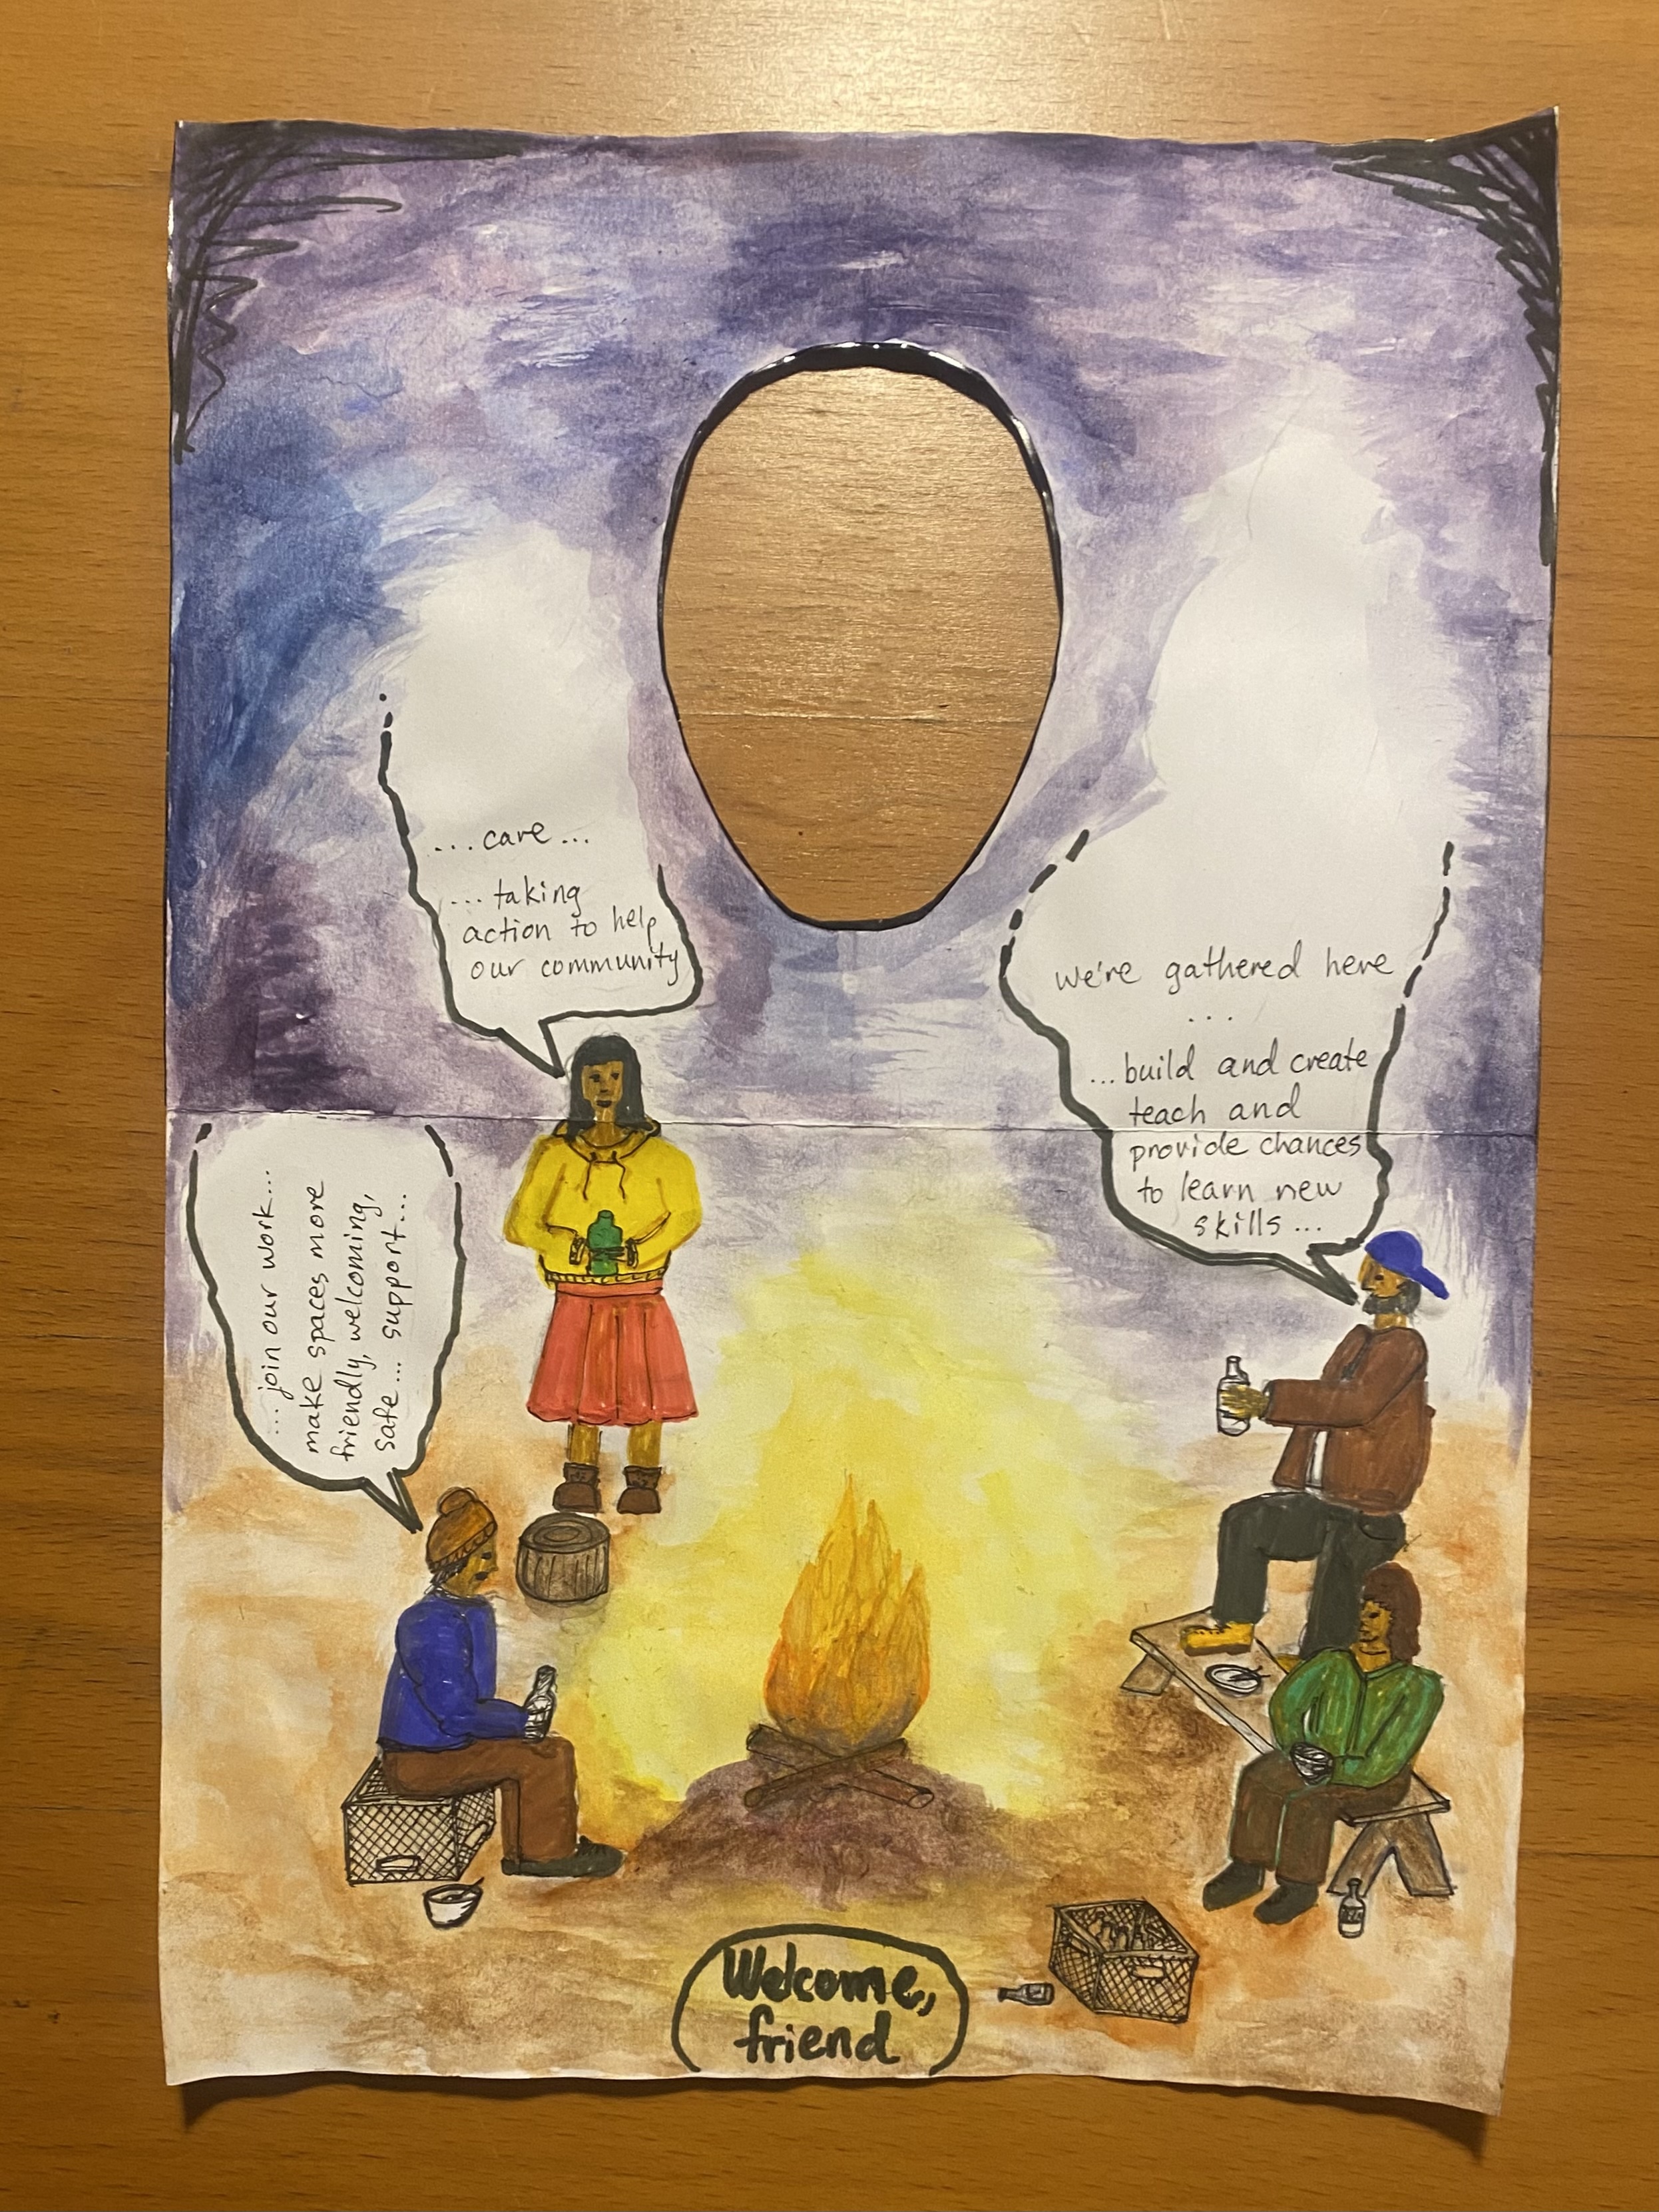 ...care...
...taking
action to help
our community
we're gathered here
...
...build and create
teach and
provide chances
to learn new
skills...
... join our work...
make spaces more
friendly, welcoming,
safe... support...
Welcome,
friend